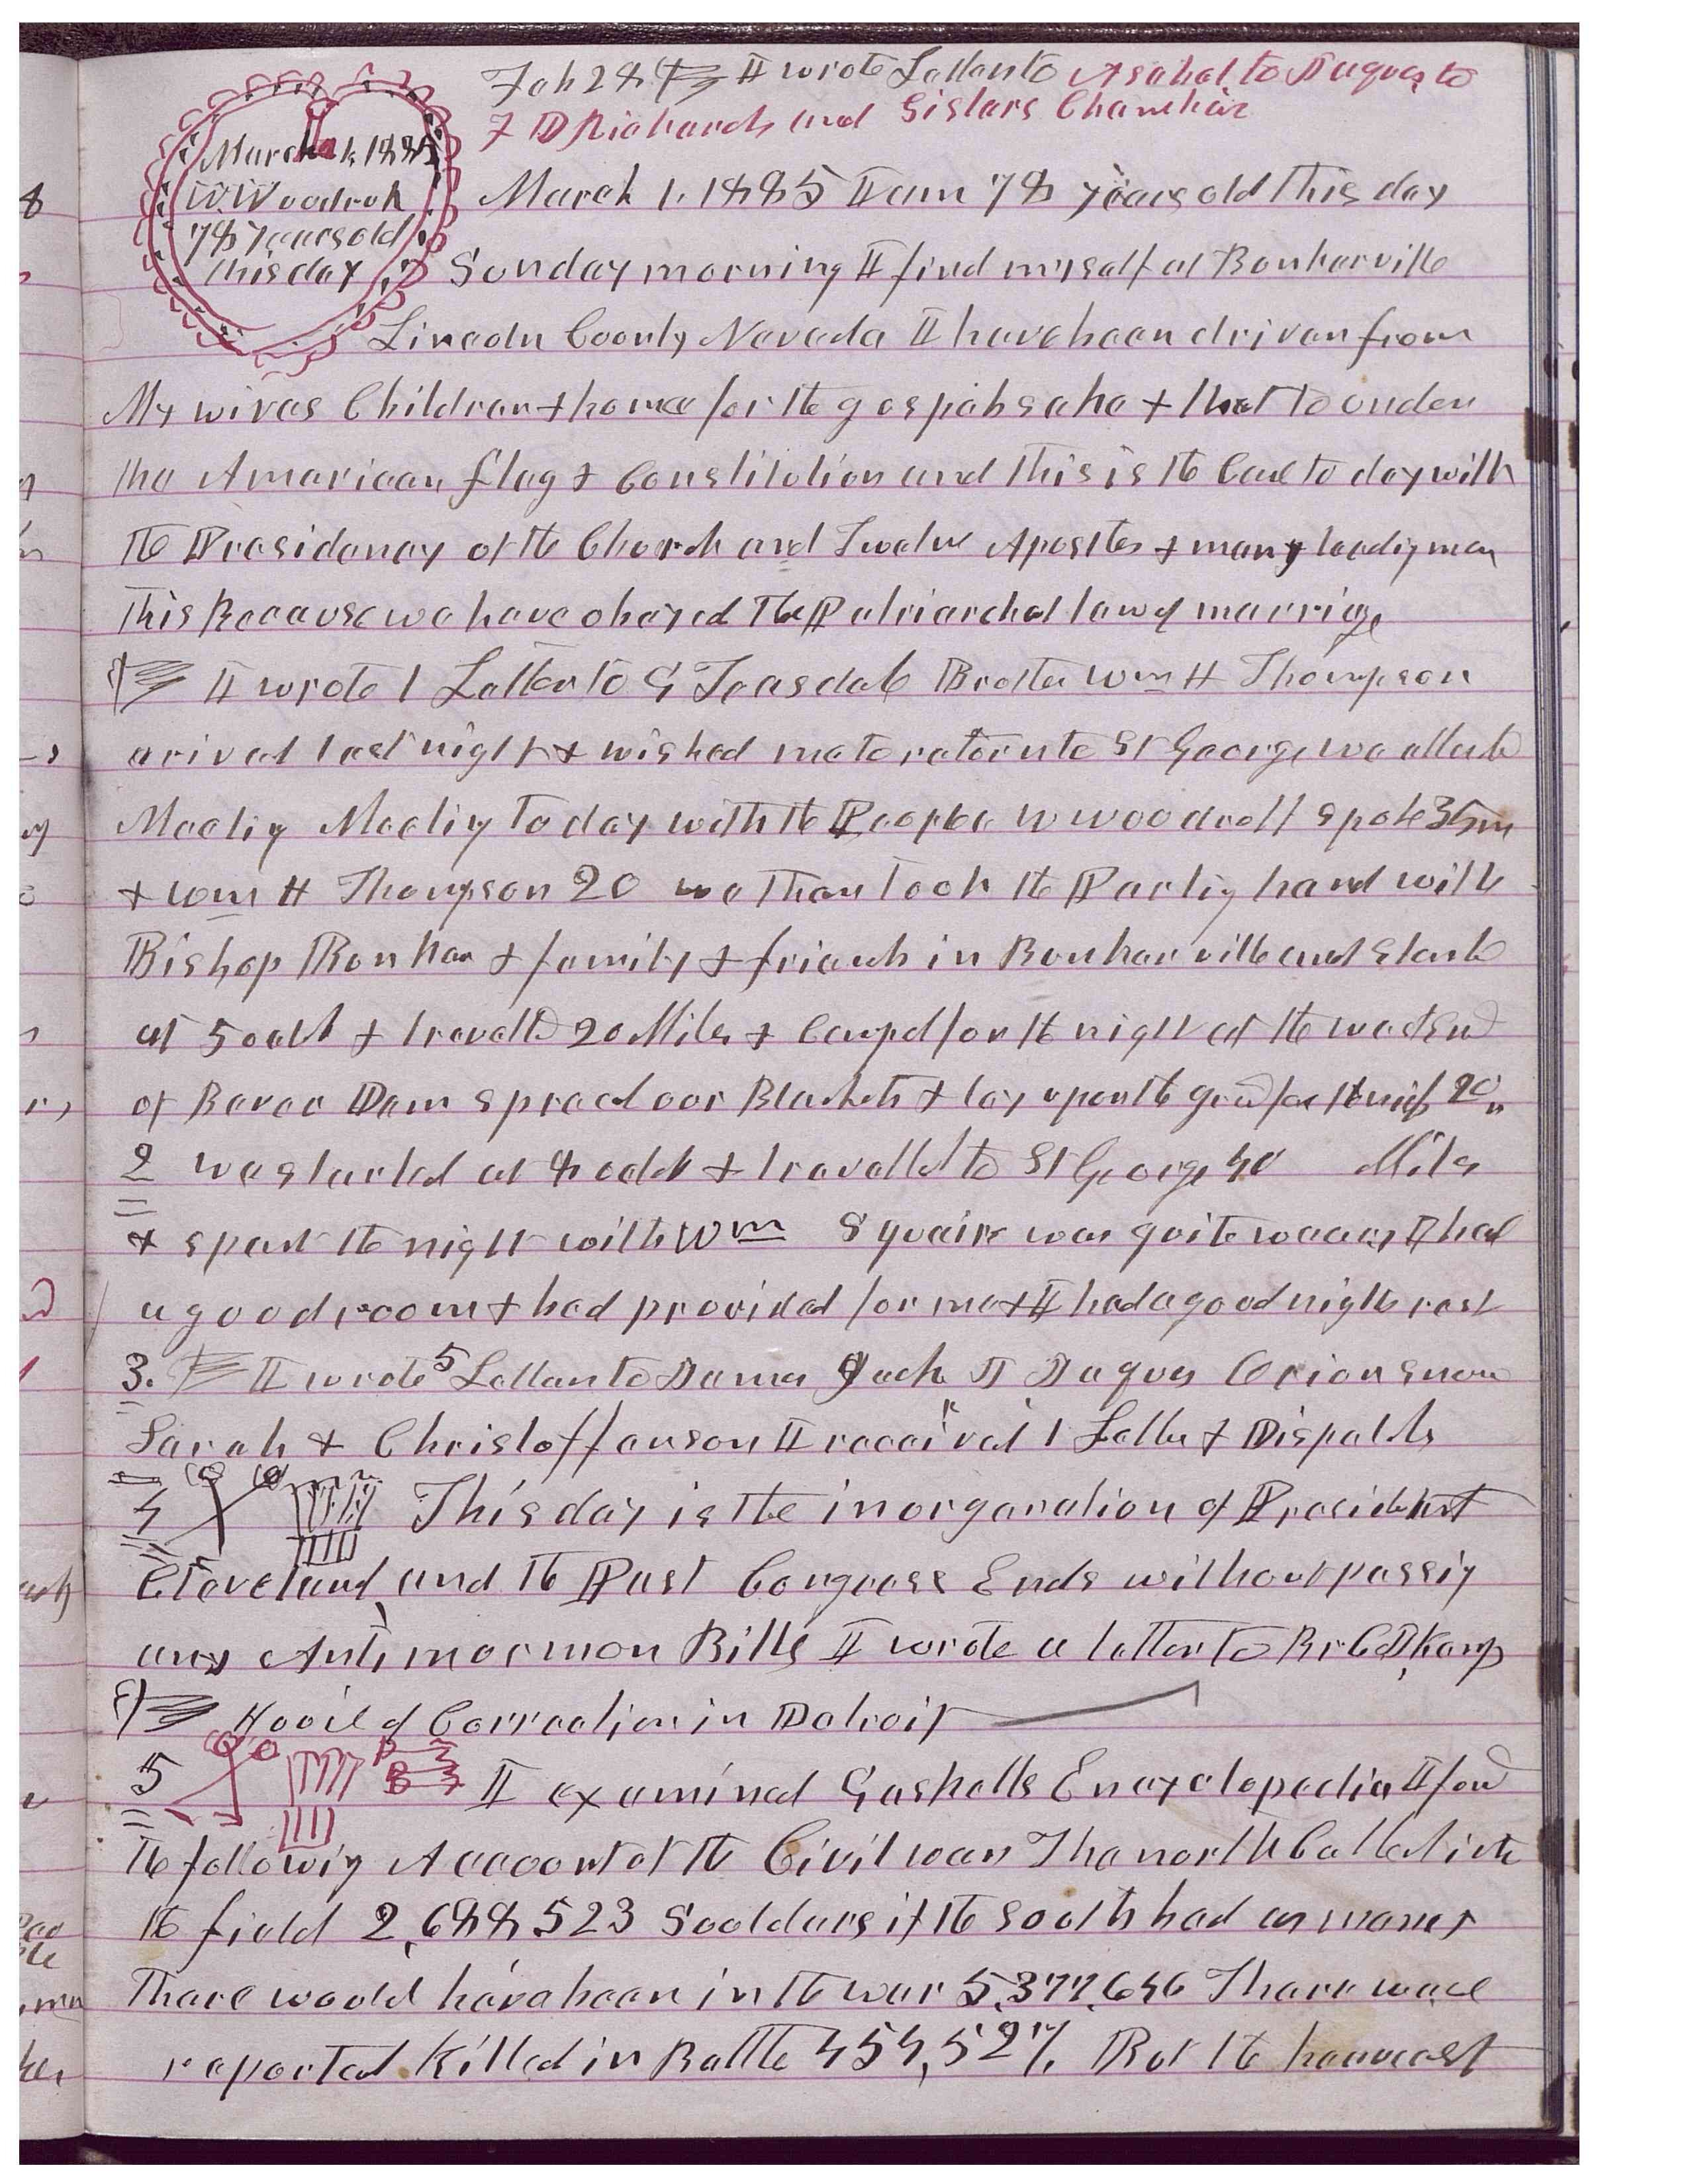 Feb 28 I wrote Letter to Asahel to D uque to
F D Richards and Sisters
March 1, 1885
W Woodruff
78 Years old
this day
March 1, 1885 I am 78 years old this day
Sunday morning I find myself at Bunkerville
Lincoln County Nevada I have been driven from
My wives Children & home for the gospels sake & that to under
the American flag & Constitution and this is the Case to day with
the Presidency of the Church and Twelve Apostles & many leadig men
This Because we have obeyed the Patriarchal law of marriage
I wrote 1 Letter to G Teasdale Brother Wm H Thompson
arived last night & wished me to return to St George we attend
Meetig Meetig to day with the People W Woodruff spoke 35 m
& Wm H Thompson 20 we then took the Partig hand with
Bishop Bunker & family & friends in Bunkerville and started
at 5 oclok & travelled 20 Miles & Campd for the night at the west End
of Bever Dam spread our Blankets & lay upon the ground for the night 20 m
2 we started at 8 oclok & travelled to St George 40 Miles
& spent the night with Wm Squire was quite weary I had
a good room & bed provided for me & I had a good nights rest
3. I wrote 5 Letters to Jack Orion Snow
Sarah & Christoffenson I received 1 Letter & Dispatch
4 This day is the inorgaration of President
Cleveland, and the Past Congress Ends without passig
any Anti mormon Bills I wrote a letter to Br
House of Correction in Detroit
5 I examined Gaskells Encyclopedia I found
the following Account of the Civil war The north Called into
the field 2,688,523 Sooldiers if the South had as many
There would have been in the war 5,377,646 There were
reported Killed in Battle 454,527. But the